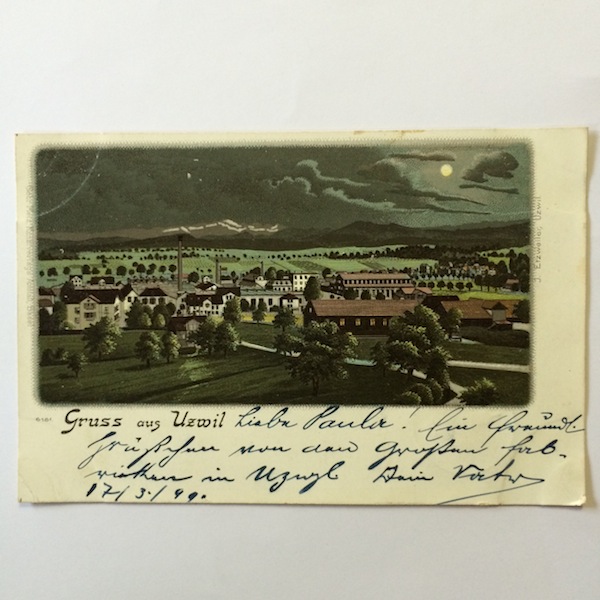 J. Etzweiler, Uzwil
6161.
Gruss aus Uzwil Liebe Paula! Ein freundl.
Grüßchen von den Großen Fab-
riken in Uzwyl Dein Vater
17/3./99.